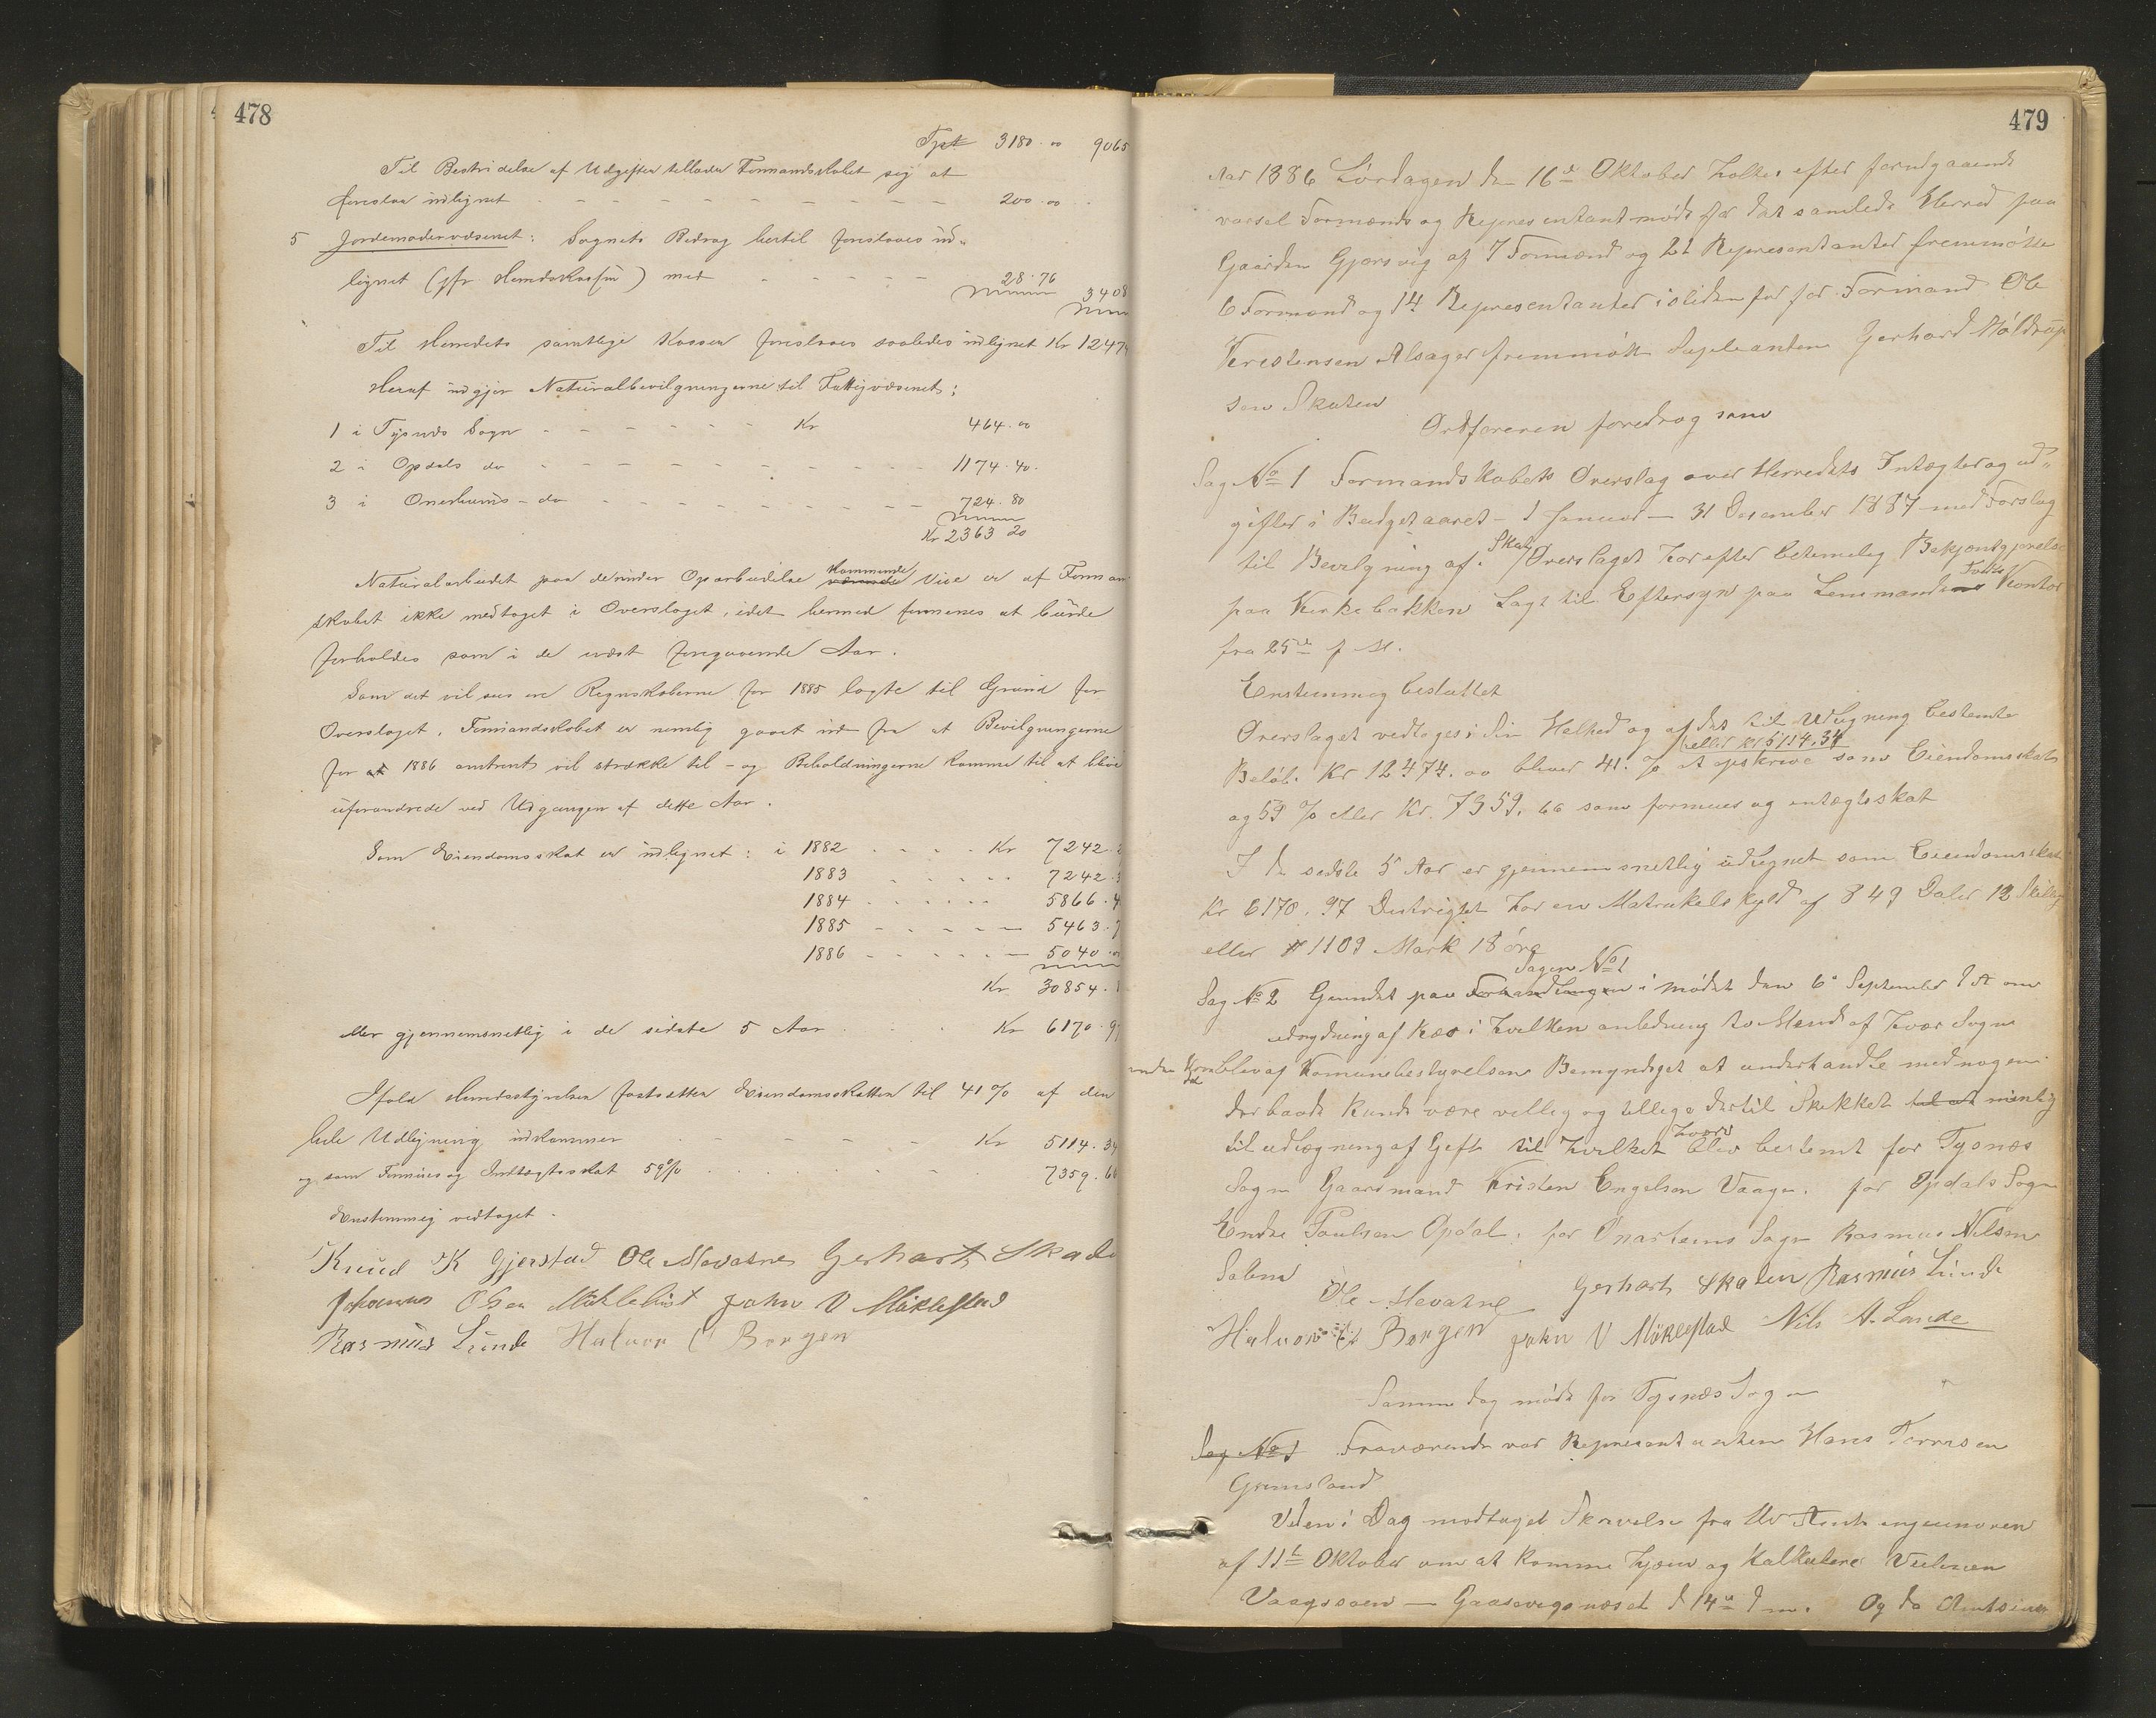 478
Tpt 3180.00 9065
Til Bestridelse af Udgifter tillader Formandskabet sig at
foreslaa udlignet - - - - - - - - - - 200.00
5 Jordemodervæsenet: Sognets Bidrag hertil foreslaaes ud„
lignet (jfr Herredskassen) med - - - - - 28.76
3408
Til Herredets samtlige Kasser foreslaaes saaledes udlignet Kr 1247
Heraf udgjør Naturalbevilgningerne til Fattigvæsenet:
1 i Tysnes Sogn - - - - - - - Kr 464.00
2 i Opdals do - - - - - - - - - - 1174.40.
3 i Onerheims - do - - - - - - - - - 724.80
Kr 2363 20
Naturalarbeidet paa de under Oparbeidelse værende kommende Veie er af Forman
skabet ikke medtaget i Overslaget, idet hermed formenes at burde
forholdes som i de næst foregaaende Aar.
Som det vil sees ere Regnskaberne for 1885 lagte til Grund for
Overslaget. Formandskabet er nemlig gaaet ud fra at Bevilgningerne
for at 1886 omtrent vil strække til - og Beholdningerne komme til at blive
uforandrede ved Udgangen af dette Aar.
Som Eiendomsskat er udlignet: i 1882 . . . . Kr 7242.2
1883 . . . . . . 7242.3
1884 . . . . . . 5866.4
1885 - - - - - 5463.7
1886 - - - - - 5040.0
Kr 30854.
eller gjennemsnetlig i de sidste 5 Aar . . . Kr 6170.97
Ifald Herredsstyrelsen fastsætter Eiendomsskatten til 41% af den
hele Udligning udkommer - - - - - Kr 5114.34
og som Formues og Indtægtsskat 59% . . . . . . 7359.66
Enstemmig vedtaget.
Knud K Gjerstad Ole Mevatne Gerhart Skate
Johannes Olsen Myklebust John V Myklestad
Rasmus Lunde Halvor O Borgen
479
Aar 1886 Lørdagen den 16de Oktober holtes efter forudgaaende
varsel Formænds og Representantmøde for det samlede Herred paa
Gaarden Gjersvig af 7 Formænd og 21 Representanter fremmøtte
6 Formænd og 14 Representanter isteden for for Formand Ole
Kristensen Alsager fremmøtte Supleanten Gerhard Høldrup
sen Skaten
Ordføreren foredrog som
Sag No 1 Formandskabets Overslag over Herredets Intægter og ud„
gifter i Budgetaaret - 1 Januar - 31 December 1887 med Forslag
til Bevilgning af Skat. Overslaget har efter betimelig Bekjentgjørelse
paa Kirkebakken Lagt til Eftersyn paa Lensmandens Kontor
fra 25de f M.
Enstemmig besluttet
Overslaget vedtoges i sin Helhed og af det til Udligning bestemte
Beløb Kr 12474.00 bliver 41. % eller kr 5114.34 at opskrive som Eiendomsskat
og 59 % eller Kr. 7359.66 som formues og intægtsskat
I de sidste 5 Aar er gjennemsnetlig udlignet som Eiendomsskat
Kr 6170.97 Distrigtet har en Matrikelskyld af 849 Daler 12 Skilling
eller 1109 Mark 18 øre
Sag No 2 Grundet paa Forhandlingen Sagen No 1 i mødet den 6te September d A om
udrydning af Ræv i hvilken anledning to Mend af hver Sogn
blev af Komunebestyrelsen Bemyndiget at underhandle med nogen
der baade kunde være villig og tillige dertil Skikket til at nemlig
til udlægning af Gift til hvilket hverv blev bestemt for Tysnæs
Sogn Gaardmand Kristen Engelsen Vaage. for Opdals Sogn
Endre Paulsen Opdal. for Onarheims Sogn Rasmus Nilsen
Ole Mevatne Gerhart Skaten Rasmus Lunde
Halvor O Borgen John V Myklestad Nils A. Lande
Samme dag møde for Tysnæs Sogn
Sag No 1 Fraværende var Representanten Hans Tørresen
Grimsland
Veden i Dag modtaget Skrivelse fra Hr Amts ingeniøren
af 11te Oktober om at komme hjem og Kalkulere Veilinien
Vaagsøen - Gaasevigsnæset d 14de d m. Og da Amtsin